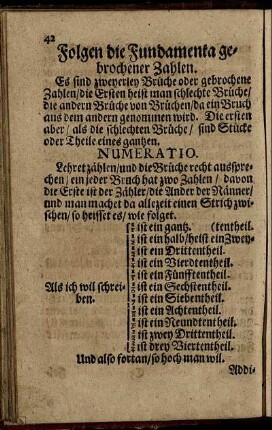 42
Folgen die Fundamenta ge-
brochener Zahlen.
Es sind zweyerley Brüche oder gebrochene
Zahlen/die Ersten heist man schlechte Brüche/
die andern Brüche von Brüchen/da ein Bruch
aus dem andern genommen wird. Die ersten
aber/als die schlechten Brüche/sind Stücke
oder Theile eines gantzen.
NUMERATIO.
Lehret zählen/und die Brüche recht ausspre-
chen/ein jeder Bruch hat zwo Zahlen/davon
die Erste ist der Zähler/die Ander der Nänner/
und man machet da allezeit einen Strich zwi-
schen/so heisset es/wie folget.
ist ein gantz. (tentheil.
ist ein halb/heist ein Zwey-
ist ein Drittentheil.
ist ein Vierdtentheil.
ist ein Fünfftentheil.
Als ich wil schrei- ist ein Sechstentheil.
ben. ist ein Siebentheil.
ist ein Achtentheil.
ist ein Neundtentheil.
ist zwey Drittentheil.
ist drey Viertentheil.
Und also fortan/so hoch man wil.
Addi-